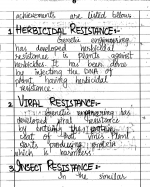 achievements are listed below
1. HERBICIDAL RESISTANCE:-
Genetic engineering
has developed herbicidal
resistance in plants against
herbicides. It has been done
by injecting the DNA of
plant, having herbicidal
resistance.
2. VIRAL RESISTANCE:-
Genetic engineering has
developed viral resistance
by entering the protein
coat of that virus. Plant
starts producing protein
which is harmless
3. INSECT RESISTANCE:-
In the similar